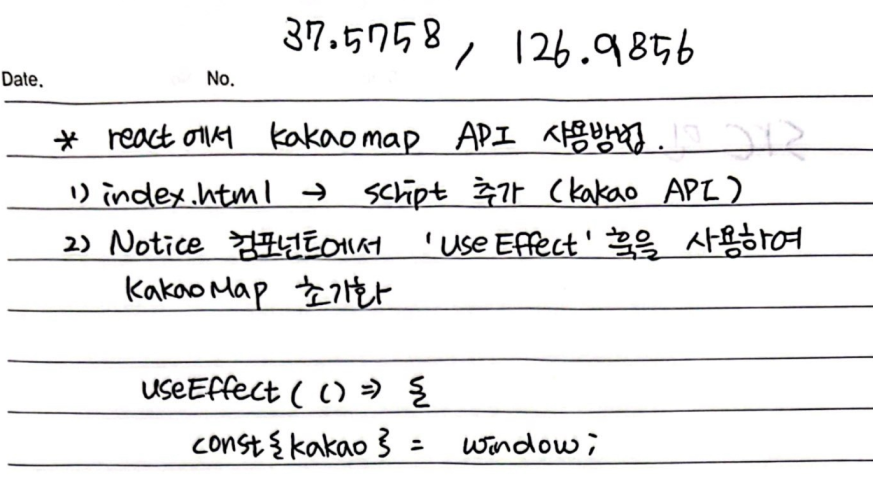 37.5758, 126.9856
Date. No.
* react에서 kakaomap API 사용방법.
1) index.html → script 추가 (kakao API)
2) Notice 컴포넌트에서 'useEffect' 훅을 사용하여
KakaoMap 초기화
useEffect(() => {
const{kakao} = window;